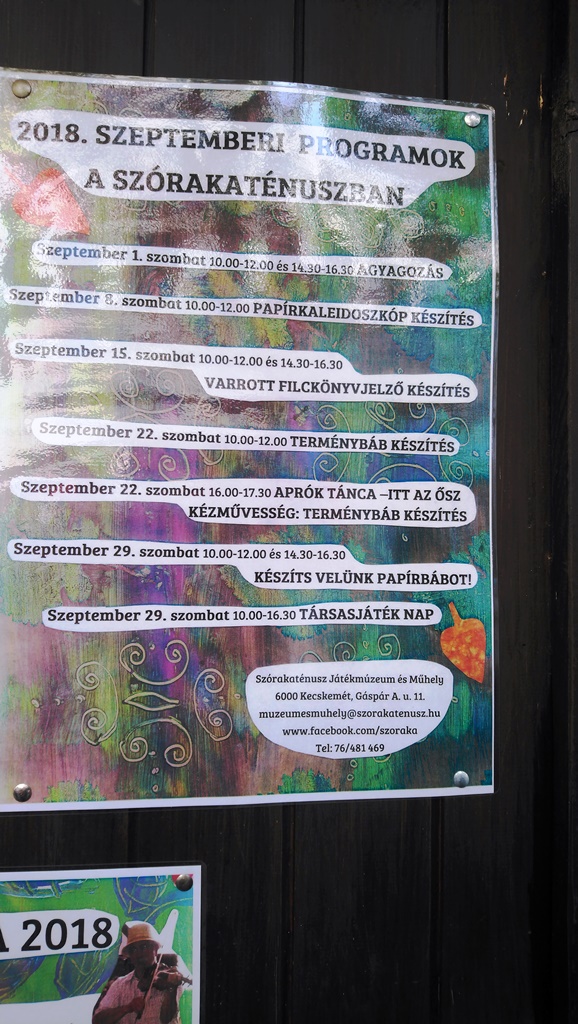 2018. SZEPTEMBERI PROGRAMOK
A SZÓRAKATÉNUSZBAN
Szeptember 1. szombat 10.00-12.00 és 14.30-16.30 AGYAGOZÁS
Szeptember 8. szombat 10.00-12.00 PAPÍRKALEIDOSZKÓP KÉSZÍTÉS
Szeptember 15. szombat 10.00-12.00 és 14.30-16.30
VARROTT FILCKÖNYVJELZŐ KÉSZÍTÉS
Szeptember 22. szombat 10.00-12.00 TERMÉNYBÁB KÉSZÍTÉS
Szeptember 22. szombat 16.00-17.30 APRÓK TÁNCA –ITT AZ ŐSZ
KÉZMŰVESSÉG: TERMÉNYBÁB KÉSZÍTÉS
Szeptember 29. szombat 10.00-12.00 és 14.30-16.30
KÉSZÍTS VELÜNK PAPÍRBÁBOT!
Szeptember 29. szombat 10.00-16.30 TÁRSASJÁTÉK NAP
Szórakaténusz Játékmúzeum és Műhely
6000 Kecskemét, Gáspár A. u. 11.
muzeumesmuhely@szorakatenusz.hu
www.facebook.com/szoraka
Tel: 76/481 469
A 2018